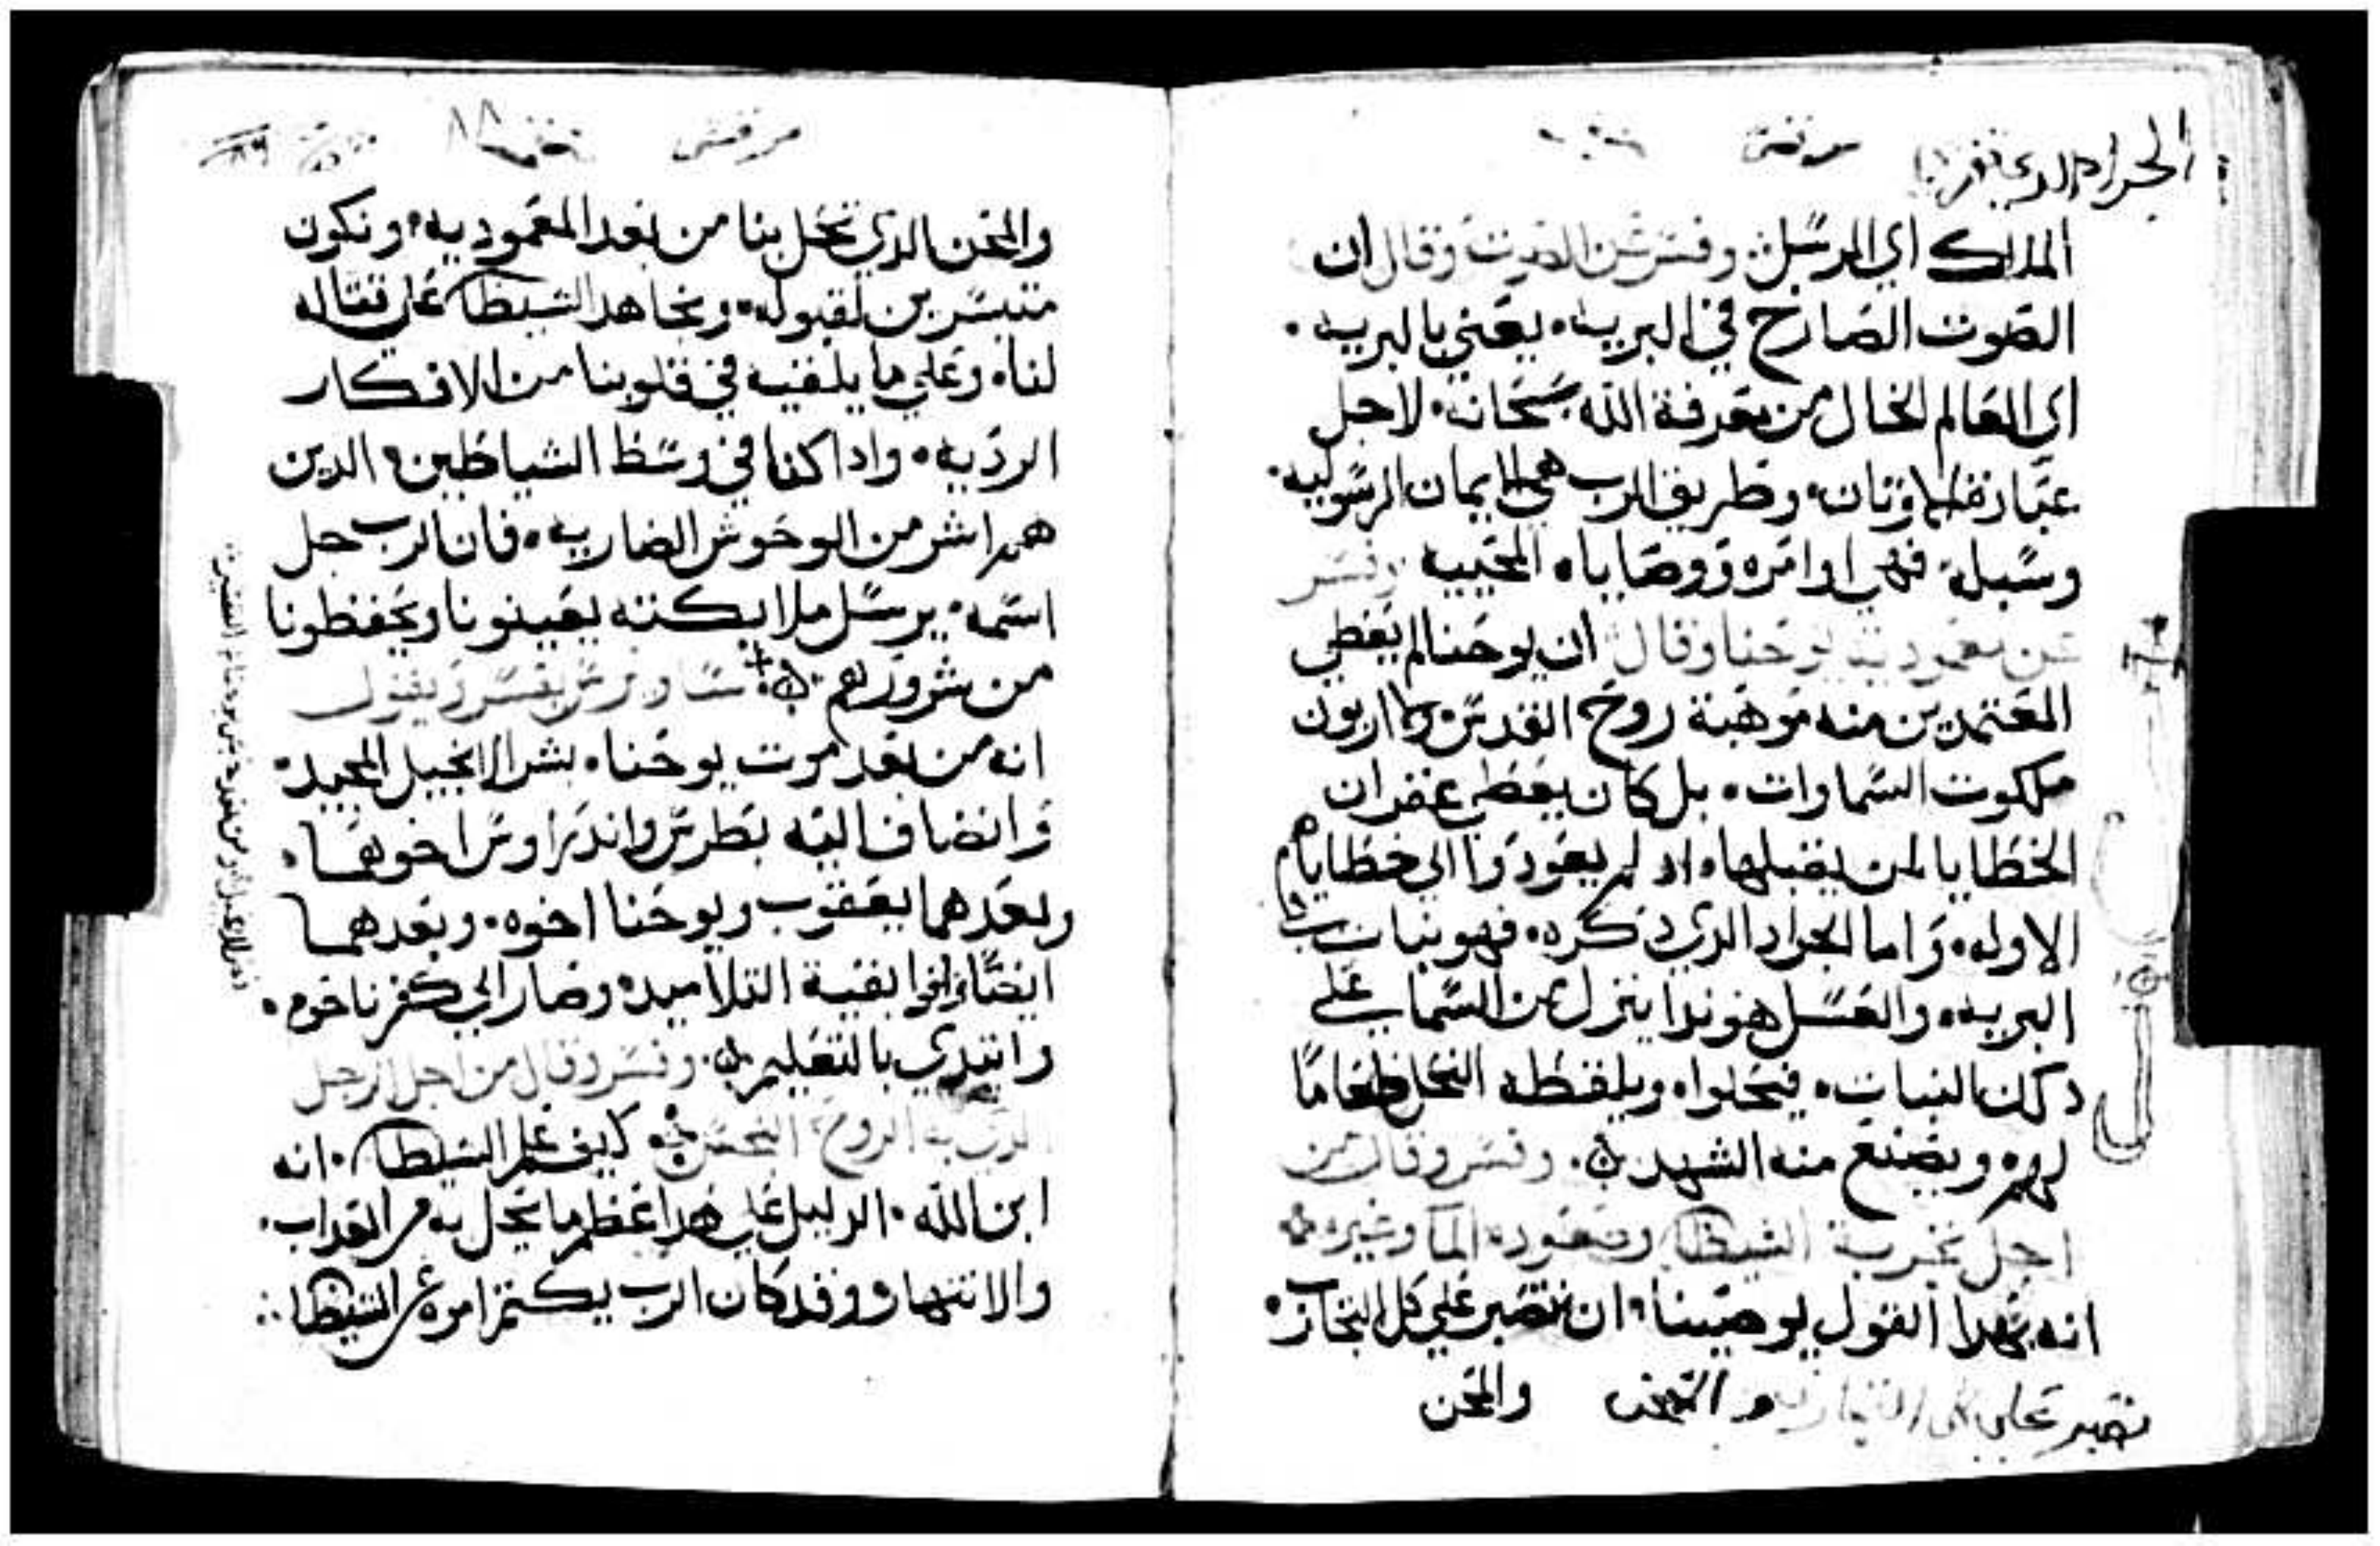 مرقس
الملاك اي المرسل وفسر عن الصوت وقال ان
الصوت الصارخ في البريه. يعني بالبريه.
اي العالم الخال من معرفة الله سبحانه. لاجل
عبادة الاوثان. وطريق الرب هي الايمان الرسوليه.
وسبله. فهي اوامره ووصاياه المحييه وفسر
عن معموديت يوحنا وقال ان يوحنا لم يعطي
المعتمدين منه موهبة روح القدس ولا اربون
ملكوت السماوات. بل كان يعطي غفران
الخطايا لمن يقبلها. اد لم يعودوا الي خطاياهم
الاوله. واما الجراد الدي دكره. فهو نبات
البريه. والعسل هو ندا ينزل من السما علي
دلك النبات. فيحلوا. ويلقطه النحل طعاما
لهم. ويصنع منه الشهد. وفسر وقال من
اجل تجربة الشيطان وصعوده الما وغيره
انه بهدا القول يوصينا. ان نصبر علي كل التجارب.
نصبر علي كل التجارب والمحن
مرقس
٨٨
والمحن الدي تحل بنا من بعد المعموديه. ونكون
متيسرين لقبوله. ونجاهد الشيطان علي قتاله
لنا. وعلي ما يلقيه في قلوبنا من الافكار
الرديه. وادا كنا في وسط الشياطين. الدين
هم اشر من الوحوش الضاريه. فان الرب جل
اسمه. يرسل ملايكته يعينونا ويحفظونا
من شرورهم. ساويرس يفسر ويقول
انه من بعد موت يوحنا. بشر الانجيل المجيد.
وانضاف اليه بطرس واندراوس اخوهما.
وبعدهما يعقوب ويوحنا اخوه. وبعدهما
ايضا وافوا بقية التلاميد. وصار الي كفرناحوم.
وابتدي بالتعليم. وفسر وقال من اجل الرجل
الدي به الروح النجس. كيف علم الشيطان. انه
ابن الله. الدليل علي هدا عظم ما يحل به من العداب.
والانتهار. وقد كان الرب يكتم امره عن الشيطان.